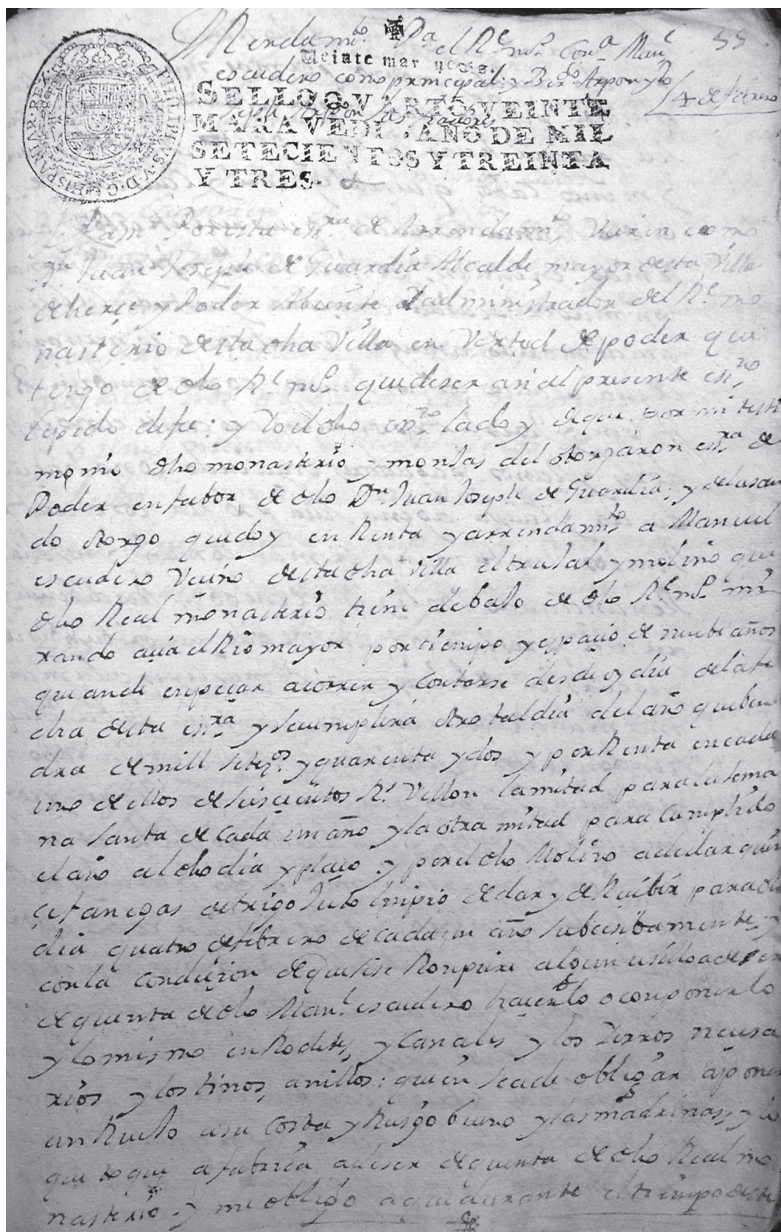 Arrendamto. Pa. el Rl. mo. Con. Manl.
55
Veinte maravedis.
escudero como principal; y
4 de febrero
HISPANIAR. REX PHILIPPUS. V. D. G.
SELLO QVARTO, VEINTE
MARAVEDIS, AÑO DE MIL
SETECIENTOS Y TREINTA
Y TRES.
Sepasse Por esta essra. de Arrendamto. Vieren como
yo Juan Joseph de Guardia Alcalde mayor desta Villa
de herze y Poder Abiente y administrador del Rl. mo
nasterio desta dha Villa en Vertud de poder que
tengo de dho Rl. mo. que de ser asi el presente essno.
de fee; y Yo el dho essno. la doy de que por mi testi
monio dho monasterio y monjas del otorgaron essra. de
Poder en fabor de dho Dn. Juan Joseph de Guardia; y del usan
do otorgo que doy en Renta y arrendamto. a Manuel
escudero Vecino desta dha Villa el trujal y molino que
dho Real monasterio tiene debajo de dho Rl. mo. mi
rando acia el Rio mayor por tiempo y espacio de nuebe años
que ande enpezar a correr y Contarse desde oy dia de la fe
cha desta essra. y se cumplira otro tal dia del año que ben
dra de mill setezos. y quarenta y dos y por Renta en cada
uno de ellos de seiscientos Rs. Vellon la mitad para la sema
na santa de cada un año y la otra mitad para Cumplido
el año al dho dia y plazo; y por el dho Molino a de dar quin
ze fanegas de trigo limpio de dar y de Recibir para el
dia quatro de febrero de cada un año subcesibamente; y
con la Condizion de que si se Ronpiere algun usillo a de ser
de quenta de dho Manl. escudero hacerlo o componerlo
y lo mismo en Rodetes y Canales y los Yerros necesa
rios y los tinos, anillos; quien se a de obligar a poner
un Ruello a su Costa y Riesgo bueno y las madrinas, y lo
que toque a fabrica a de ser de quenta de dho Real mo
nasterio; y me obligo a que durante el tiempo deste